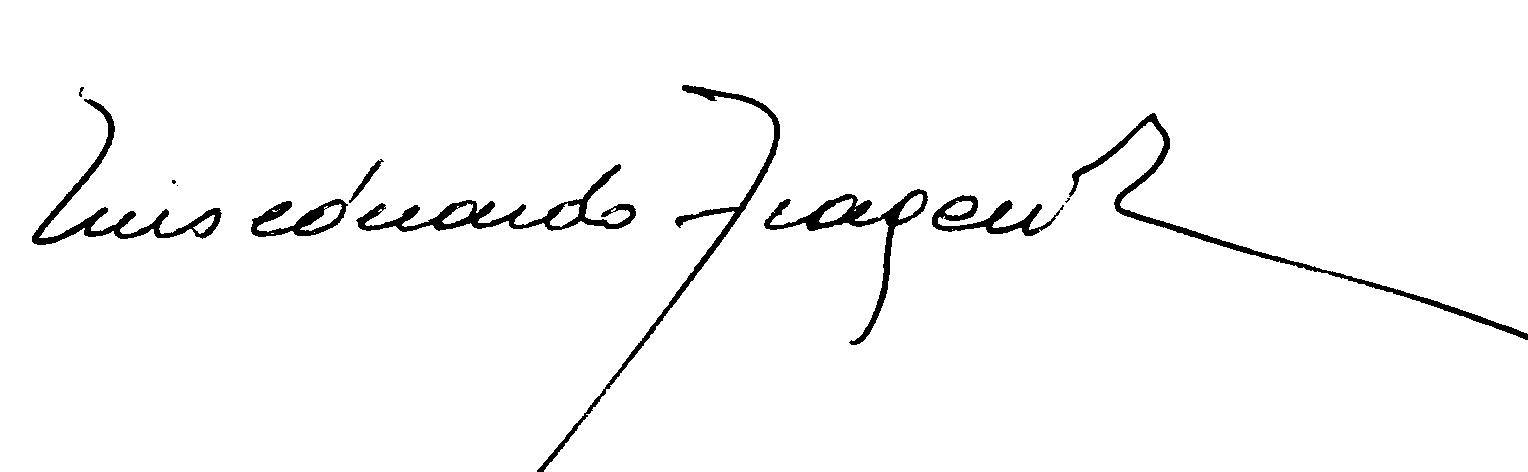 Luis eduardo Fragen R